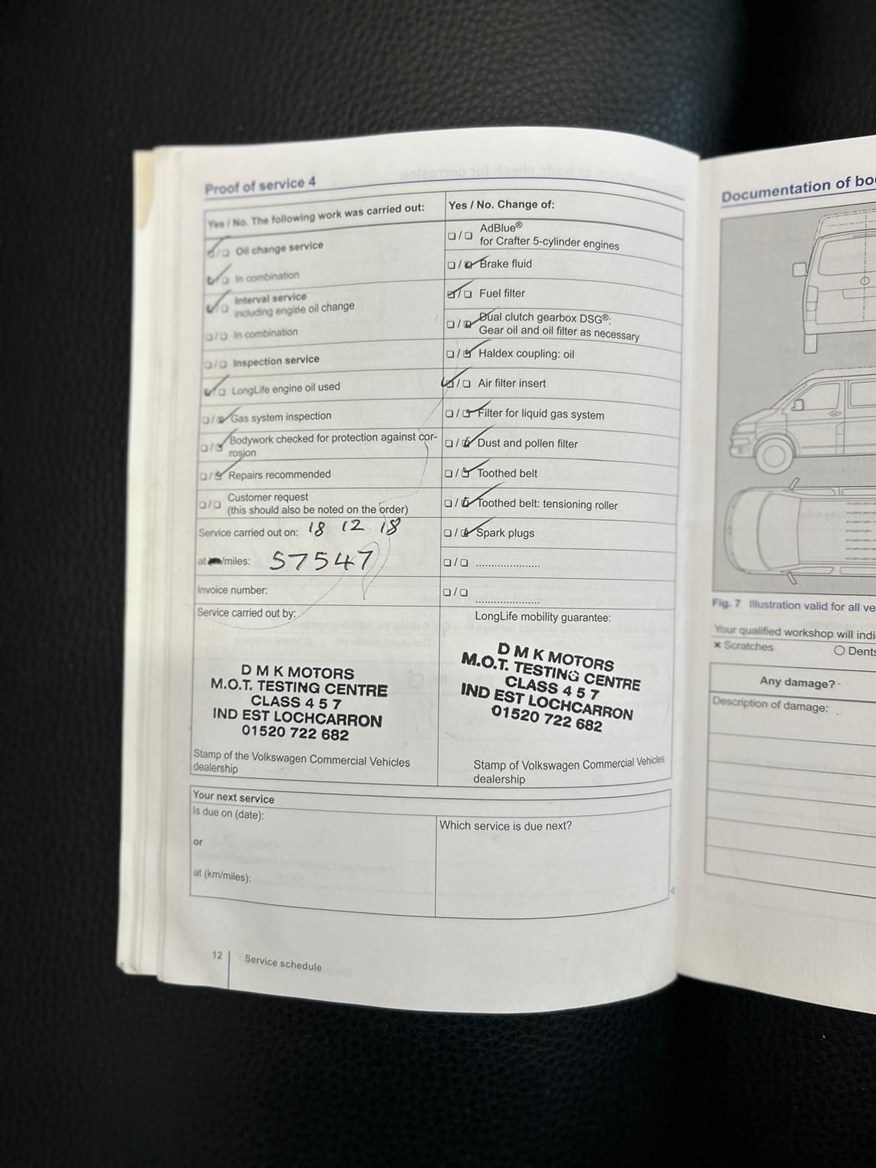 Proof of service 4
Yes / No. The following work was carried out:
Oil change service
In combination
Interval service
including engine oil change
In combination
Inspection service
LongLife engine oil used
Gas system inspection
Bodywork checked for protection against cor-
rosion
Repairs recommended
Customer request
(this should also be noted on the order)
Service carried out on: 18 12 18
at /miles: 57547
Invoice number:
Service carried out by:
D M K MOTORS
M.O.T. TESTING CENTRE
CLASS 4 5 7
IND EST LOCHCARRON
01520 722 682
Stamp of the Volkswagen Commercial Vehicles
dealership
Yes / No. Change of:
AdBlue®
for Crafter 5-cylinder engines
Brake fluid
Fuel filter
Dual clutch gearbox DSG®:
Gear oil and oil filter as necessary
Haldex coupling: oil
Air filter insert
Filter for liquid gas system
Dust and pollen filter
Toothed belt
Toothed belt: tensioning roller
Spark plugs
LongLife mobility guarantee:
D M K MOTORS
M.O.T. TESTING CENTRE
CLASS 4 5 7
IND EST LOCHCARRON
01520 722 682
Stamp of Volkswagen Commercial Vehicles
dealership
Your next service
Is due on (date):
or
at (km/miles):
Which service is due next?
12
Service schedule
Documentation of bo
Fig. 7 Illustration valid for all ve
Your qualified workshop will indi
× Scratches
O Dents
Any damage?
Description of damage: